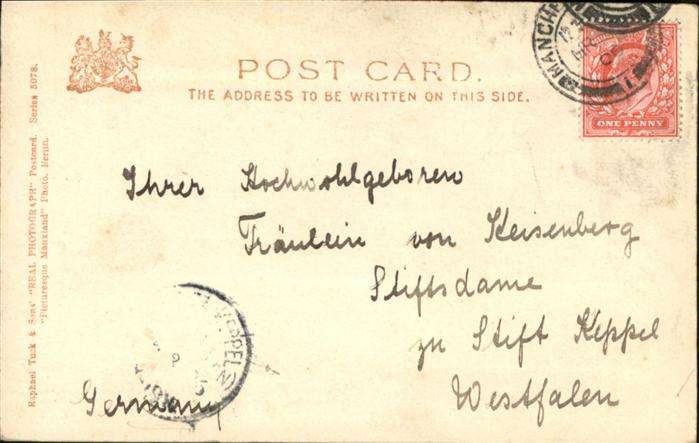 POST CARD.
THE ADDRESS TO BE WRITTEN ON THIS SIDE.
MANCHE
ONE PENNY
Raphael Tuck & Sons' "REAL PHOTOGRAPH" Postcard. Series 5078.
"Picturesque Manxland" Photo, Berlin.
Ihrer Hochwohlgeboren
Fräulein von Keisenberg
Stiftsdame
zu Stift Keppel
Westfalen
Germany